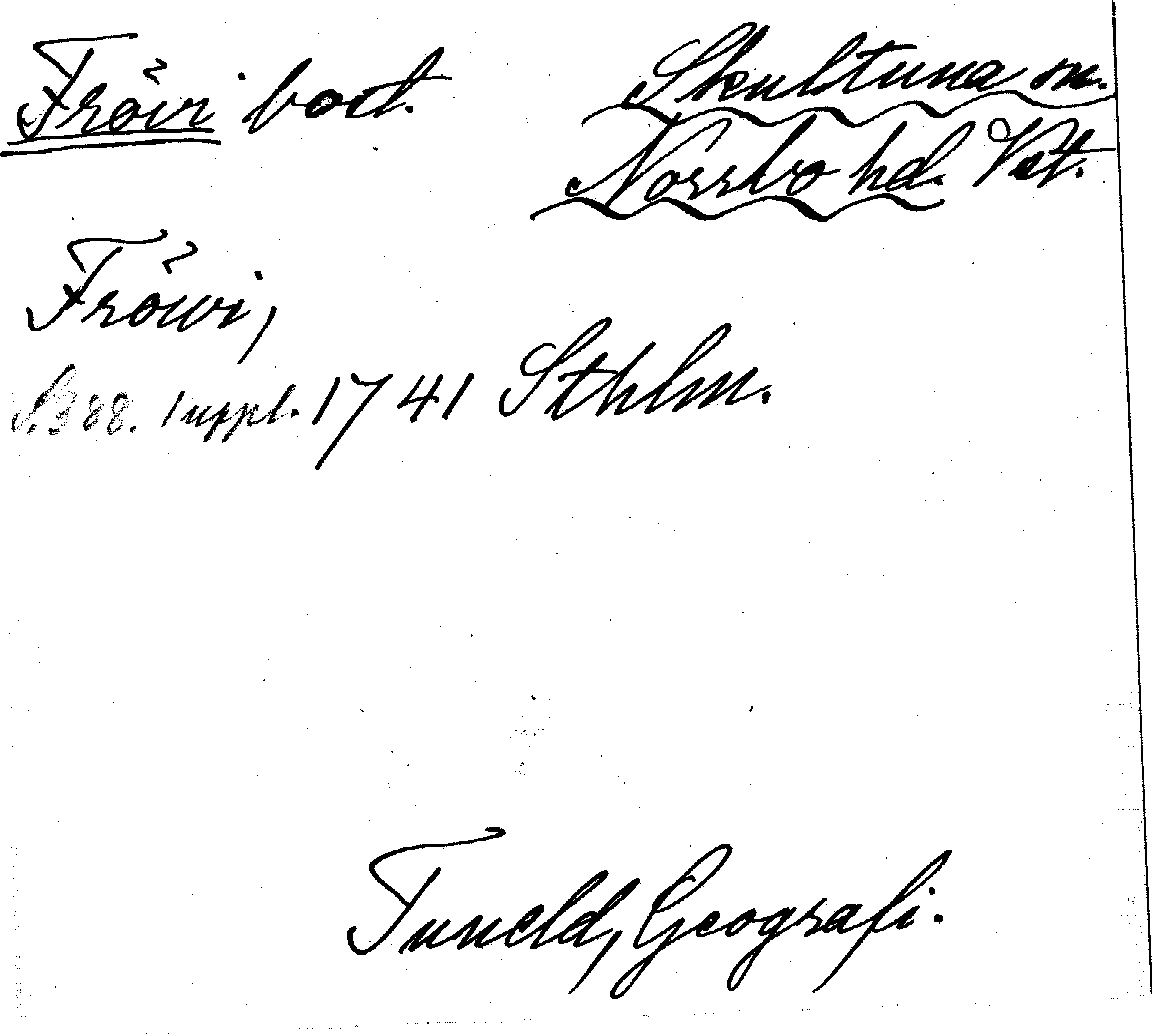 Frövi bost. Skultuna sn.
Norrbo hd. Vst.
Fröwi,
S. 388. suppl. 1741 Sthlm.
Tuneld, Geografi.